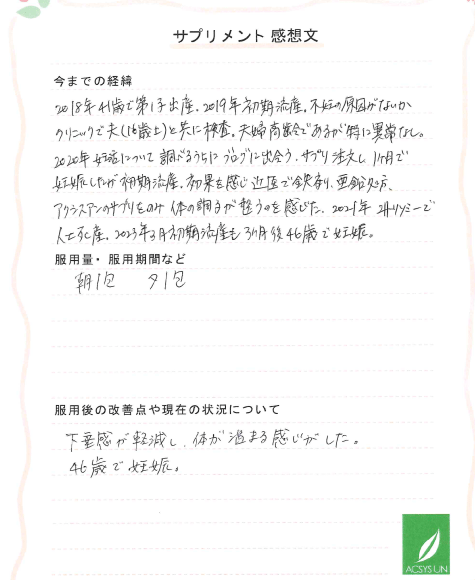 サプリメント 感想文
今までの経緯
2018年41歳で第1子出産。2019年初期流産。不妊の原因がないか
クリニックで夫(16歳上)と共に検査。夫婦高齢であるが特に異常なし。
2020年妊活について調べるうちにブログに出会う。サプリ注文し1ヶ月で
妊娠したが初期流産。効果を感じ近医で鉄剤、亜鉛処方、
アクシスアンのサプリをのみ体の調子が整うのを感じた。2021年21トリソミーで
人工死産。2023年3月初期流産も3ヶ月後46歳で妊娠。
服用量・服用期間など
朝1包 夕1包
服用後の改善点や現在の状況について
下垂感が軽減し、体が温まる感じがした。
46歳で妊娠。
ACSYS UN